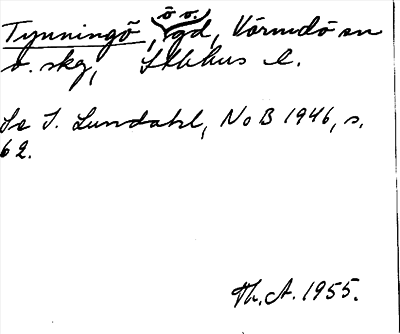 Tynningö, ö o. gd, Värmdö sn
o. skg, Sthlms l.
Se I. Lundahl, NoB 1946, s.
62.
Th. A. 1955.